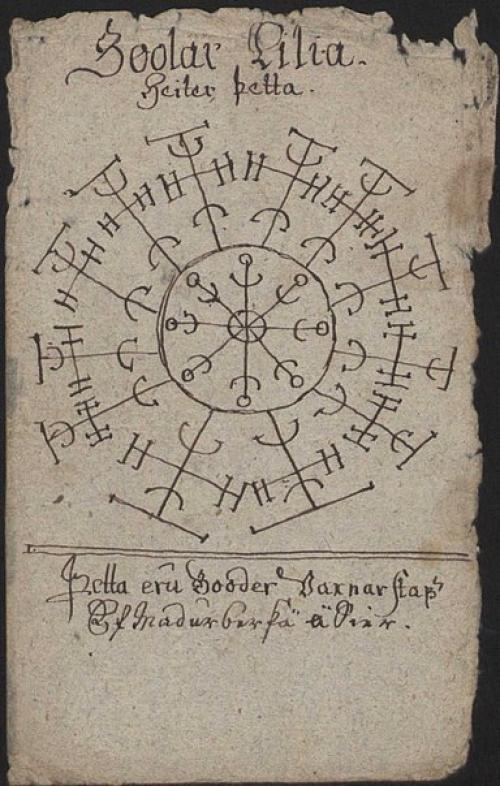 Soolar Lilia.
Heiter þetta.
Þetta eru Gooder Varnar stap
Ef Madur ber så ä Sier.